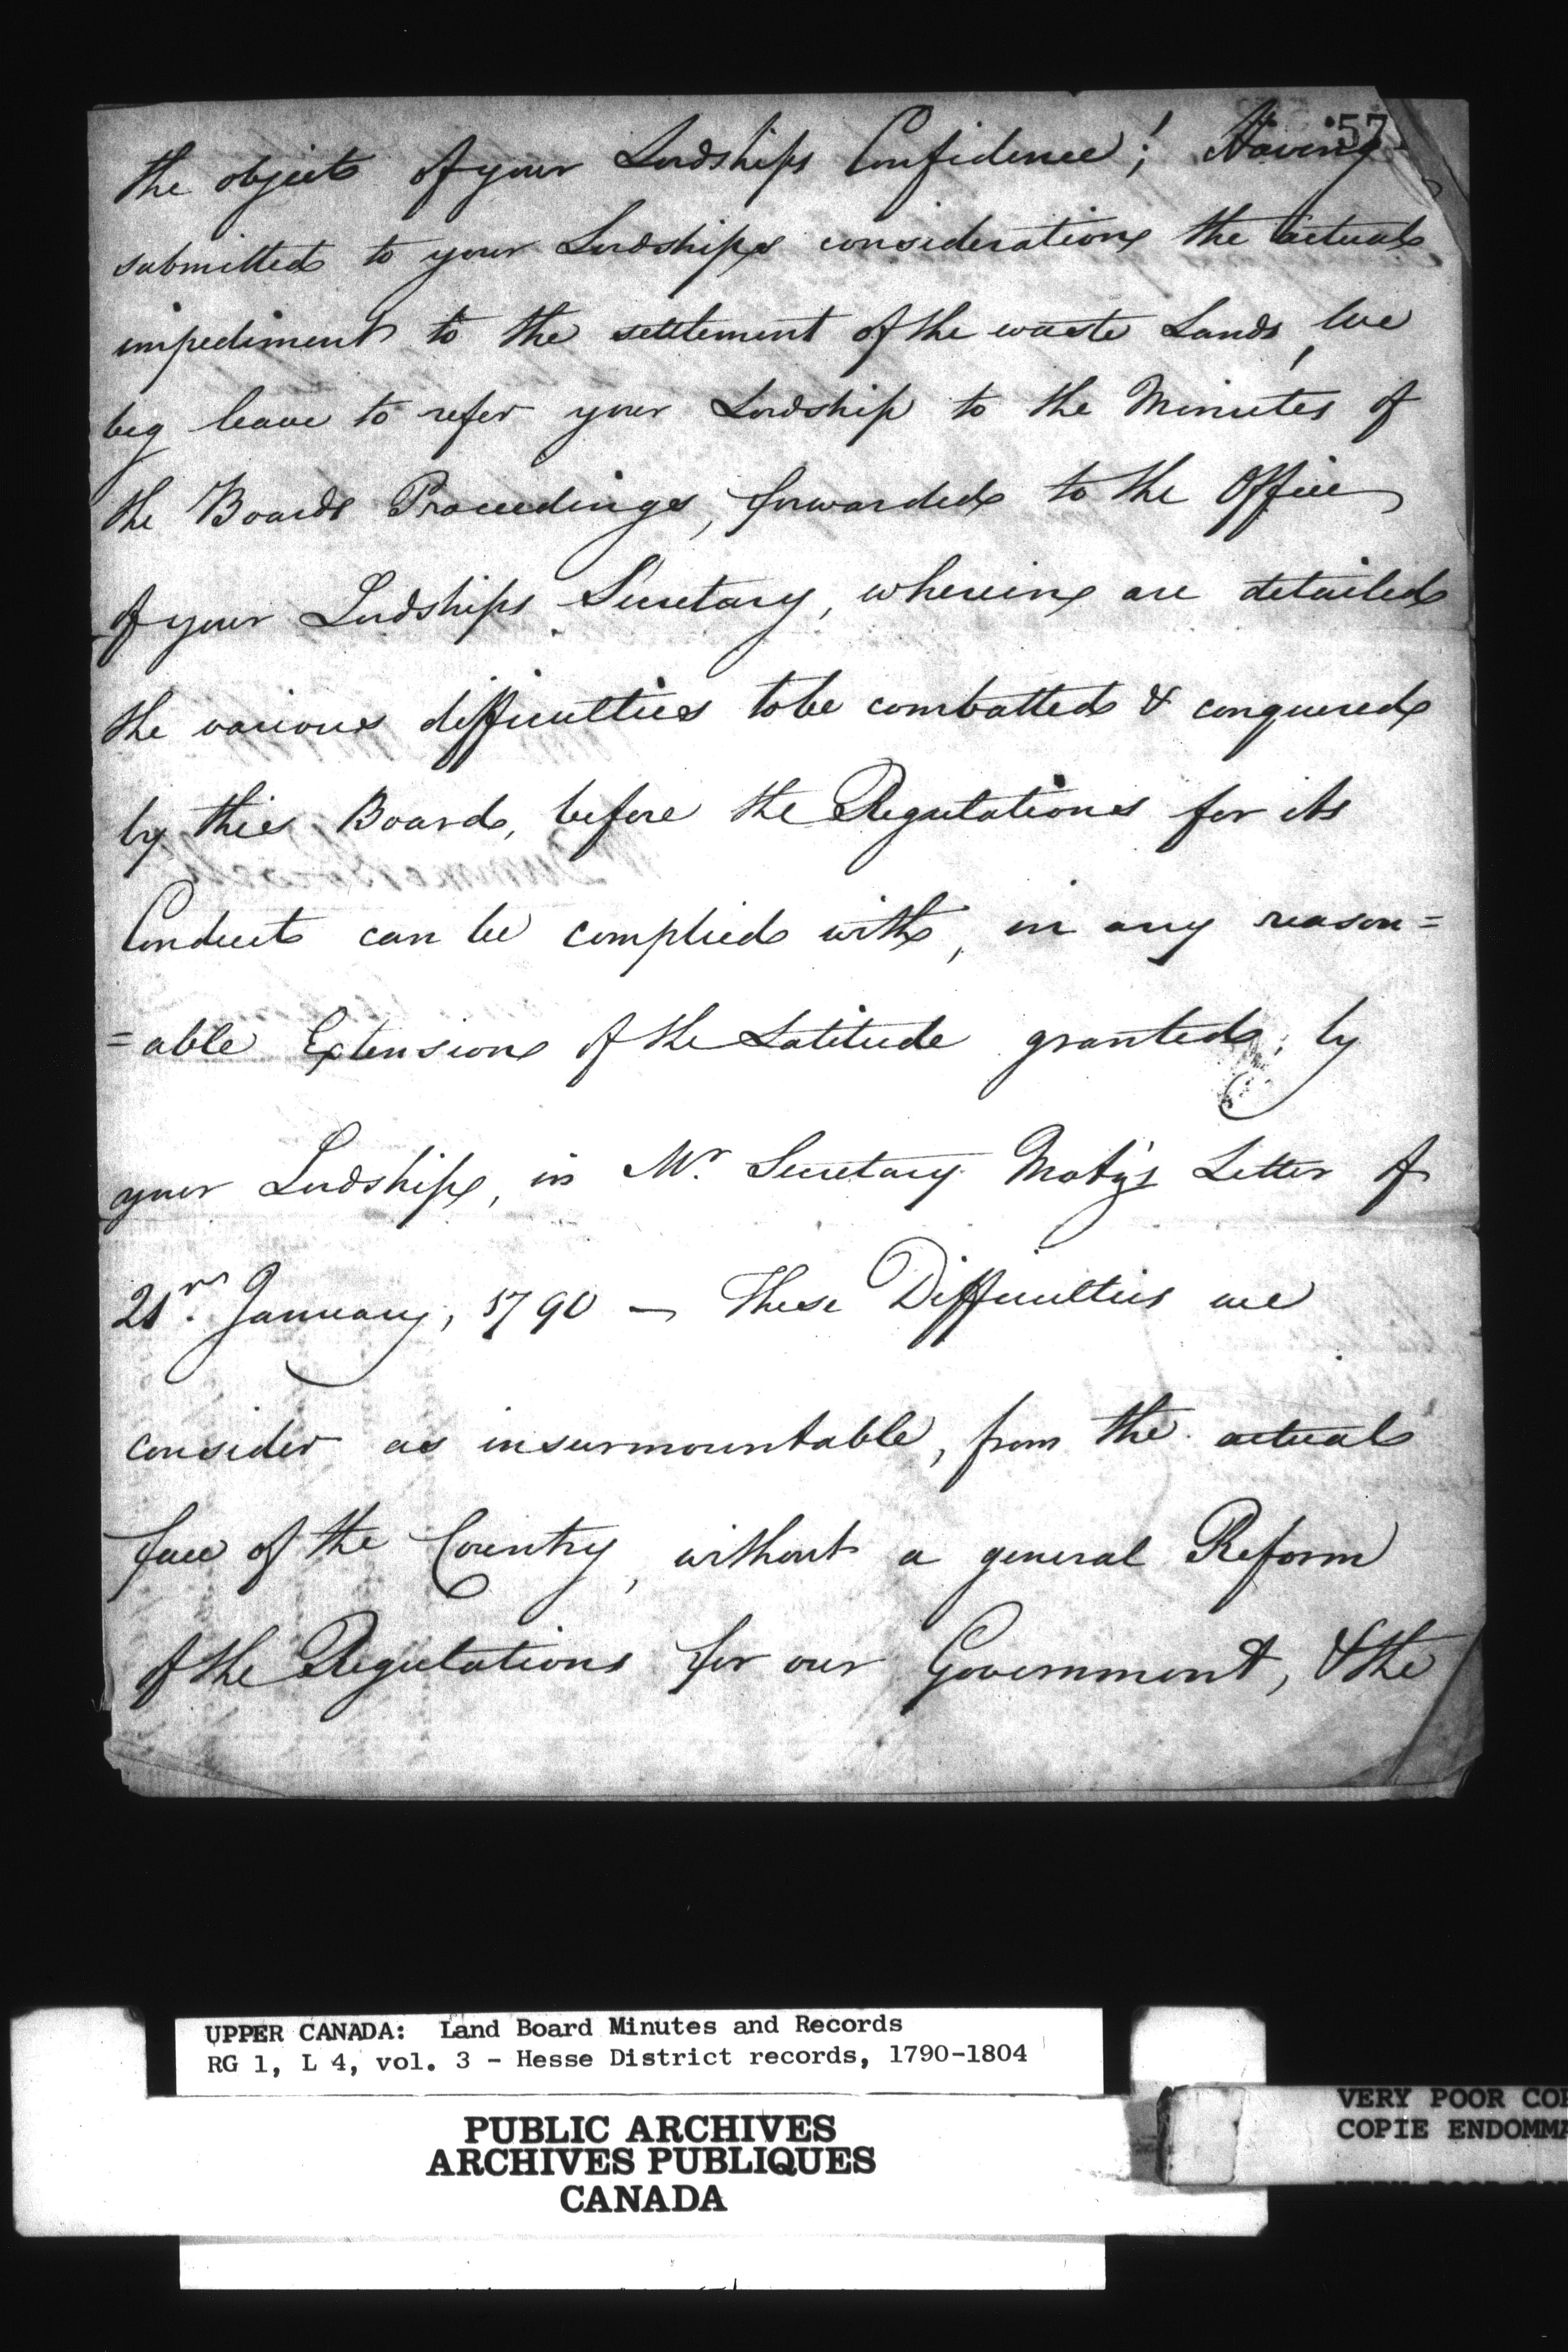 57
the objects of your Lordships Confidence! Having
submitted to your Lordships consideration the actual
impediment to the settlement of the waste Lands, we
beg leave to refer your Lordship to the Minutes of
the Boards Proceedings, forwarded to the Office
of your Lordships Secretary, wherein are detailed
the various difficulties to be combatted & conquered
by this Board, before the Regulations for its
Conduct can be complied with, in any reason=
=able Extension of the Latitude granted; by
your Lordship, in Mr. Secretary Motz's Letter of
January, 1790 — These Difficulties we
consider as insurmountable, from the actual
face of the Country, without a general Reform
of the Regulations for our Government, & the
UPPER CANADA: Land Board Minutes and Records
RG 1, L 4, vol. 3 - Hesse District records, 1790-1804
PUBLIC ARCHIVES
ARCHIVES PUBLIQUES
CANADA
VERY POOR
COPIE